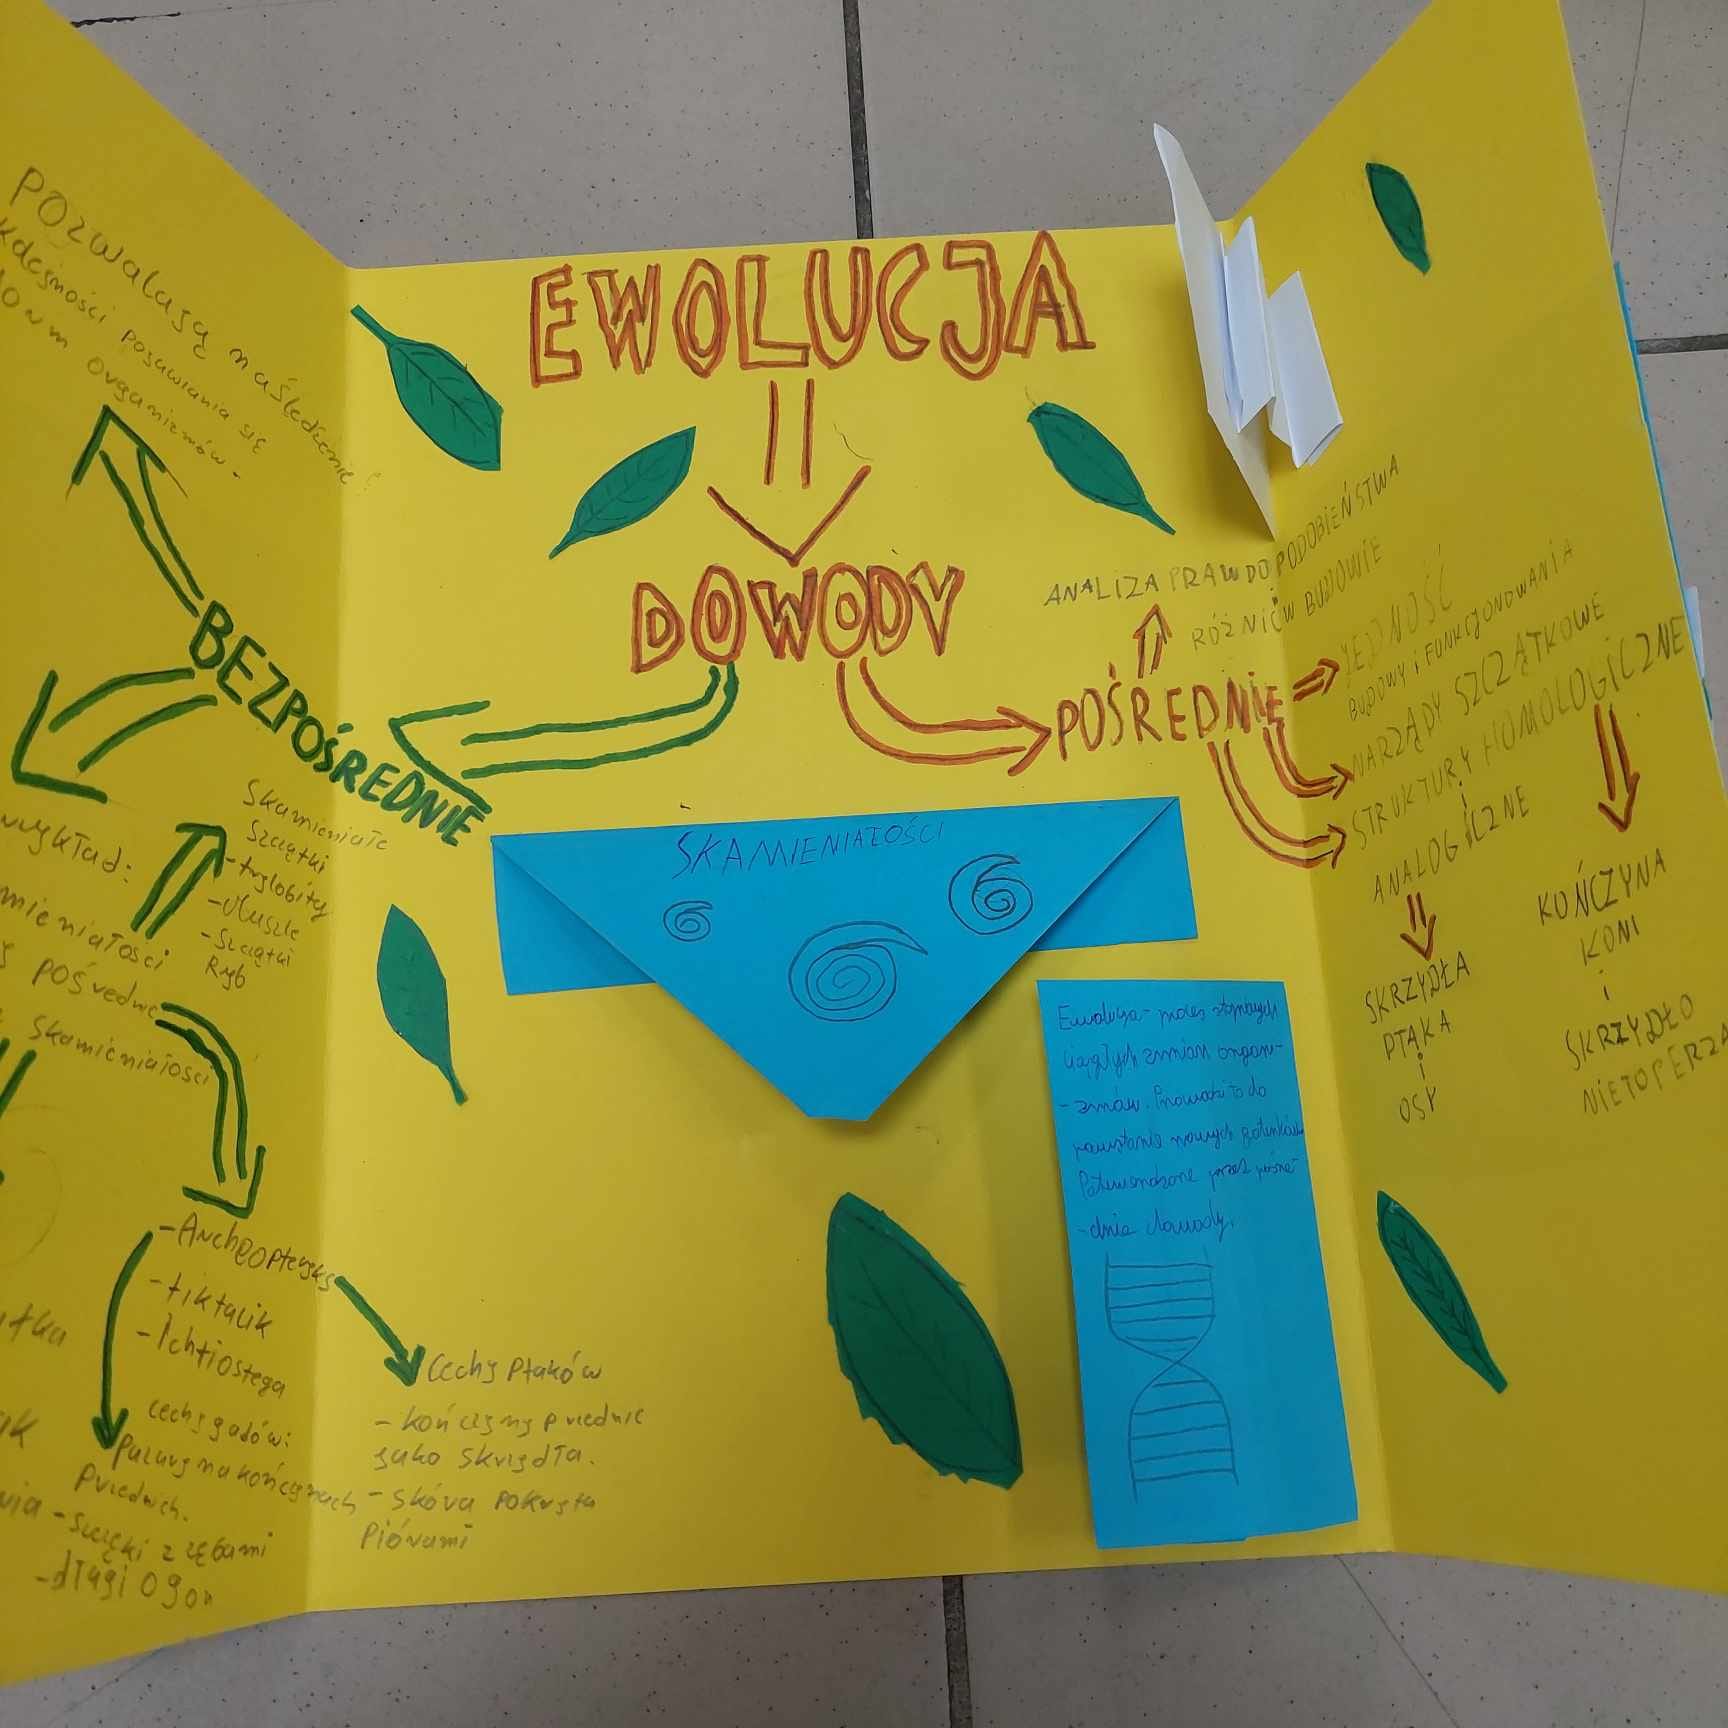 EWOLUCJA
DOWODY
BEZPOŚREDNIE
POŚREDNIE
POZWALAJĄ
pojawiania się
organizmów -
Skamieniałe
szczątki
- trylobity
- szczątki
Ryb
pośrednie
skamieniałości
- Archeopteryks
- tiktalik
- Ichtiostega
cechy gadów:
Pazury na kończynach
- szczęki z zębami
- długi ogon
Cechy Ptaków
- kończyny przednie
jako skrzydła.
- skóra pokryta
piórami
SKAMIENIAŁOŚCI
Ewolucja - proces stopniowych
ciągłych zmian organi-
- zmów. Prowadzi to do
powstania nowych gatunków
Potwierdzone przez pośre-
- dnie dowody.
ANALIZA PRAWDOPODOBIEŃSTWA
RÓŻNIC W BUDOWIE
JEDNOŚĆ
BUDOWY i FUNKCJONOWANIA
NARZĄDY SZCZĄTKOWE
STRUKTURY HOMOLOGICZNE
i
ANALOGICZNE
SKRZYDŁA
PTAKA
i
OSY
KOŃCZYNA
KONI
i
SKRZYDŁO
NIETOPERZA